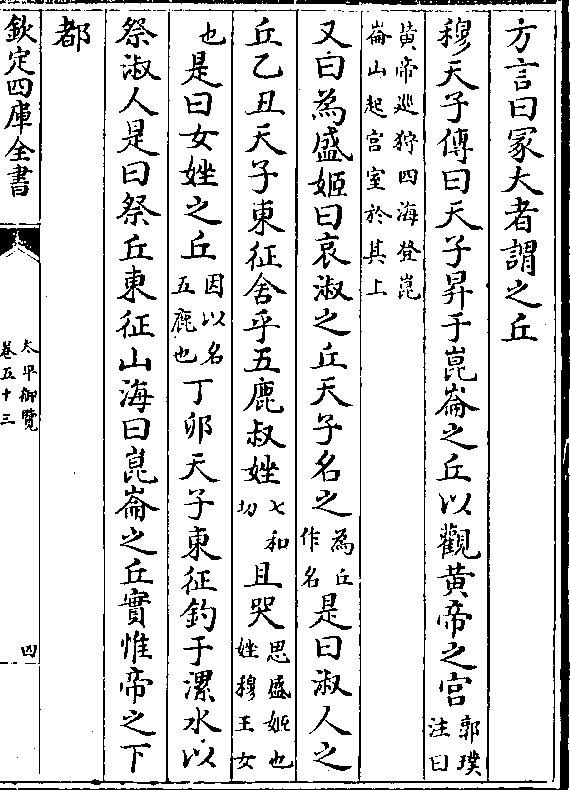 方言曰冢大者謂之丘
穆天子傳曰天子昇于崑崙之丘以觀黄帝之宫郭璞注曰
黄帝巡狩四海登崑崙山起宫室於其上
又曰為盛姬曰哀淑之丘天子名之為丘作名是曰淑人之
丘乙丑天子東征舍乎五鹿叔㛗七和切且哭思盛姬也㛗穆王女
也是曰女㛗之丘因以名五鹿也丁夘天子東征釣于漯水以
祭淑人是曰祭丘東征山海曰崑崙之丘實惟帝之下
都
欽定四庫全書
太平御覽
卷五十三
四